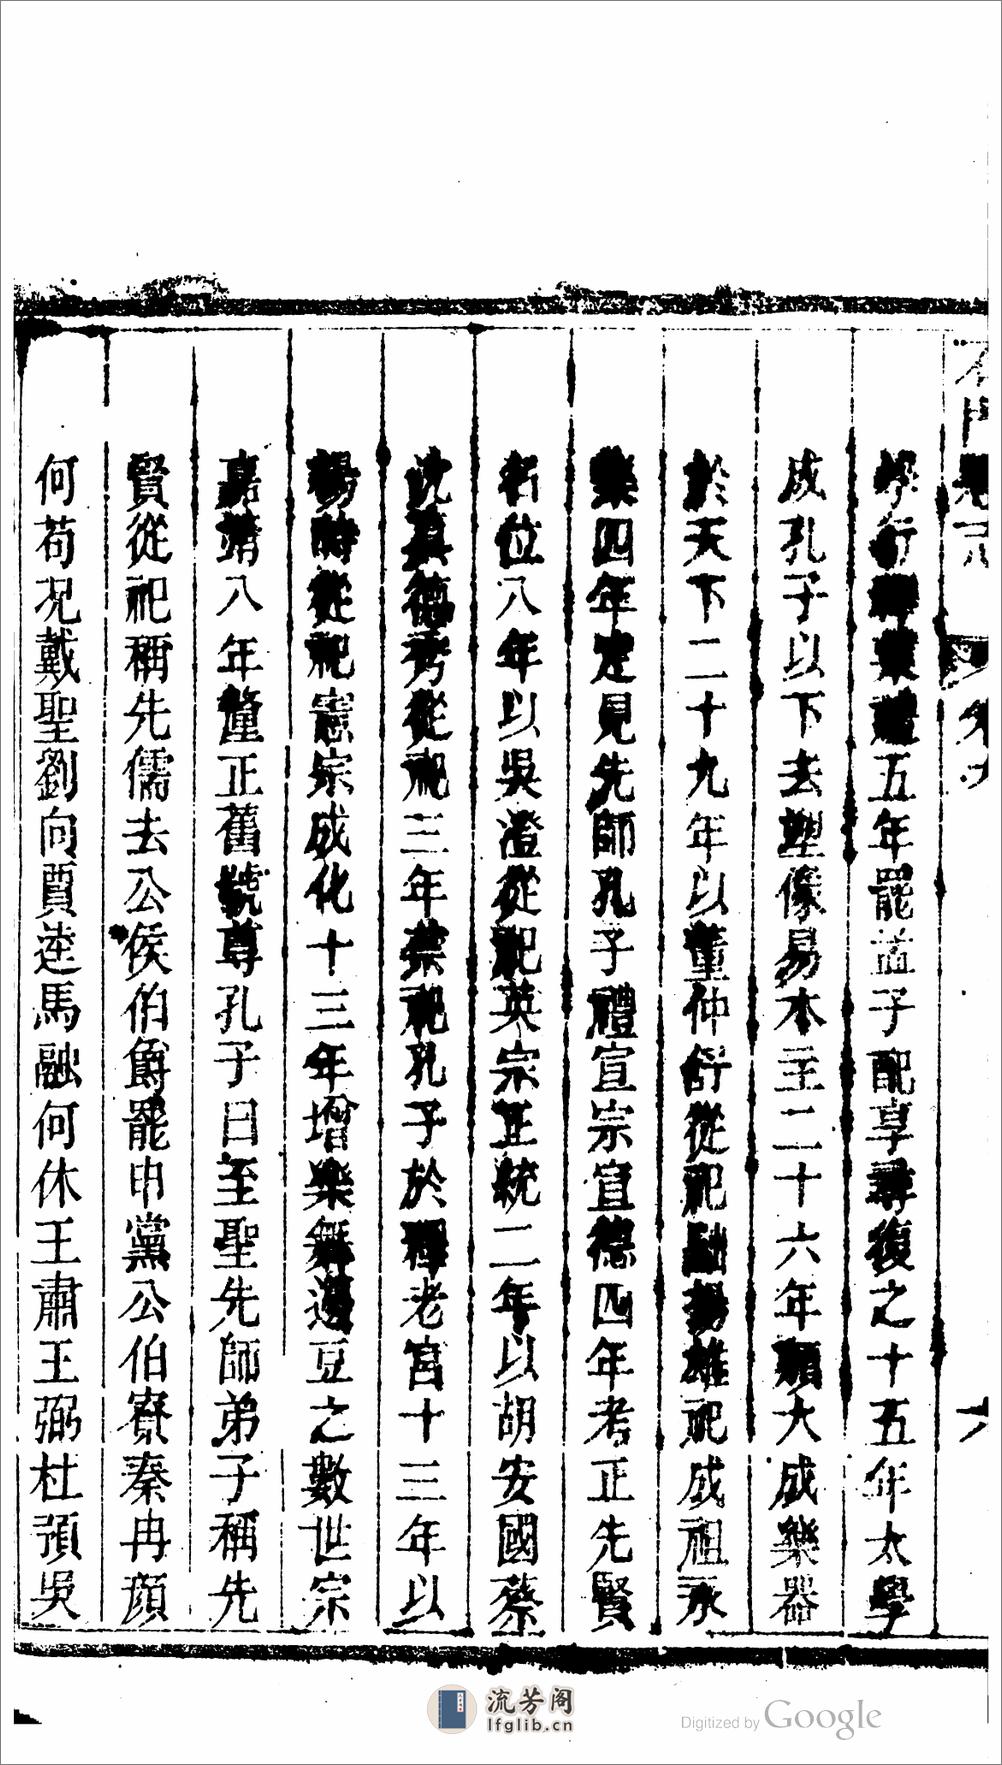 石門縣志
卷六
六
學行釋菜禮五年罷孟子配享尋復之十五年太學
成孔子以下去塑像易木主二十六年頒大成樂器
於天下二十九年以董仲舒從祀黜揚雄祀成祖永
樂四年定見先師孔子禮宣宗宣德四年考正先賢
名位八年以吳澄從祀英宗正統二年以胡安國蔡
沈真德秀從祀三年禁祀孔子於釋老宮十三年以
楊時從祀憲宗成化十三年增樂舞籩豆之數世宗
嘉靖八年釐正舊號尊孔子曰至聖先師弟子稱先
賢從祀稱先儒去公侯伯爵罷申黨公伯寮秦冉顔
何荀况戴聖劉向賈逵馬融何休王肅王弼杜預吳
流芳阁
lfglib.cn
Digitized by Google